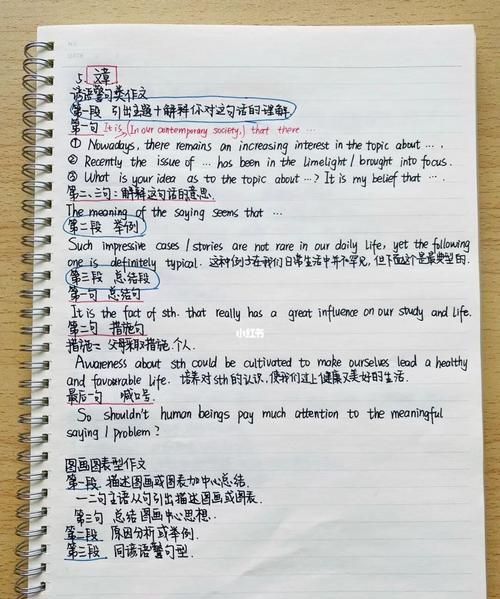 5. 文章
谚语警句类作文
第一段 引出主题+解释你对这句话的谜解
第一句 It is (In our contemporary society,) that there ...
① Nowadays, there remains an increasing interest in the topic about ....
② Recently the issue of ... has been in the limelight / brought into focus.
③ What is your idea as to the topic about ...? It is my belief that ....
第二、三句:解释这句话的意思
The meaning of the saying seems that ...
第二段 举例
Such impressive cases / stories are not rare in our daily life, yet the following
one is definitely typical. 这种例子在我们日常生活中并不罕见,但下面这个是最典型的.
第三段 总结段
第一句 总结句
It is the fact of sth. that really has a great influence on our study and life.
第二句 措施句
措施:父母采取措施.个人.
Awareness about sth could be cultivated to make ourselves lead a healthy
and favourable life. 培养对sth的认识,使我们过上健康又美好的生活.
最后一句 喊口号.
So shouldn't human beings pay much attention to the meaningful
saying / problem?
图画图表型作文
第一段 描述图画或图表加中心总结.
一二句主语从句引出描述图画或图表.
第三句 总结图画中心思想.
第二段 原因分析或举例.
第三段 同谚语警句型.
小红书